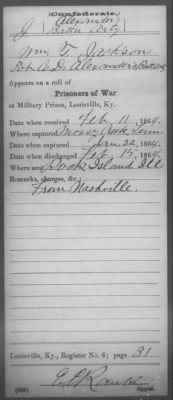 Confederate.
J Alexander
Baden Arty
Wm T. Jackson
Pvt Co D. Alexander's
Appears on a roll of
Prisoners of War
at Military Prison, Louisville, Ky.
Date when received Feb 11, 1864.
Where captured Creek, Tenn
Date when captured Jan. 22, 1864.
Date when discharged Feb 15, 1864
Where sent Rock Island Ill
Remarks, charges, &c.,
From Nashville.
Louisville, Ky., Register No. 6; page 31
Copyist.